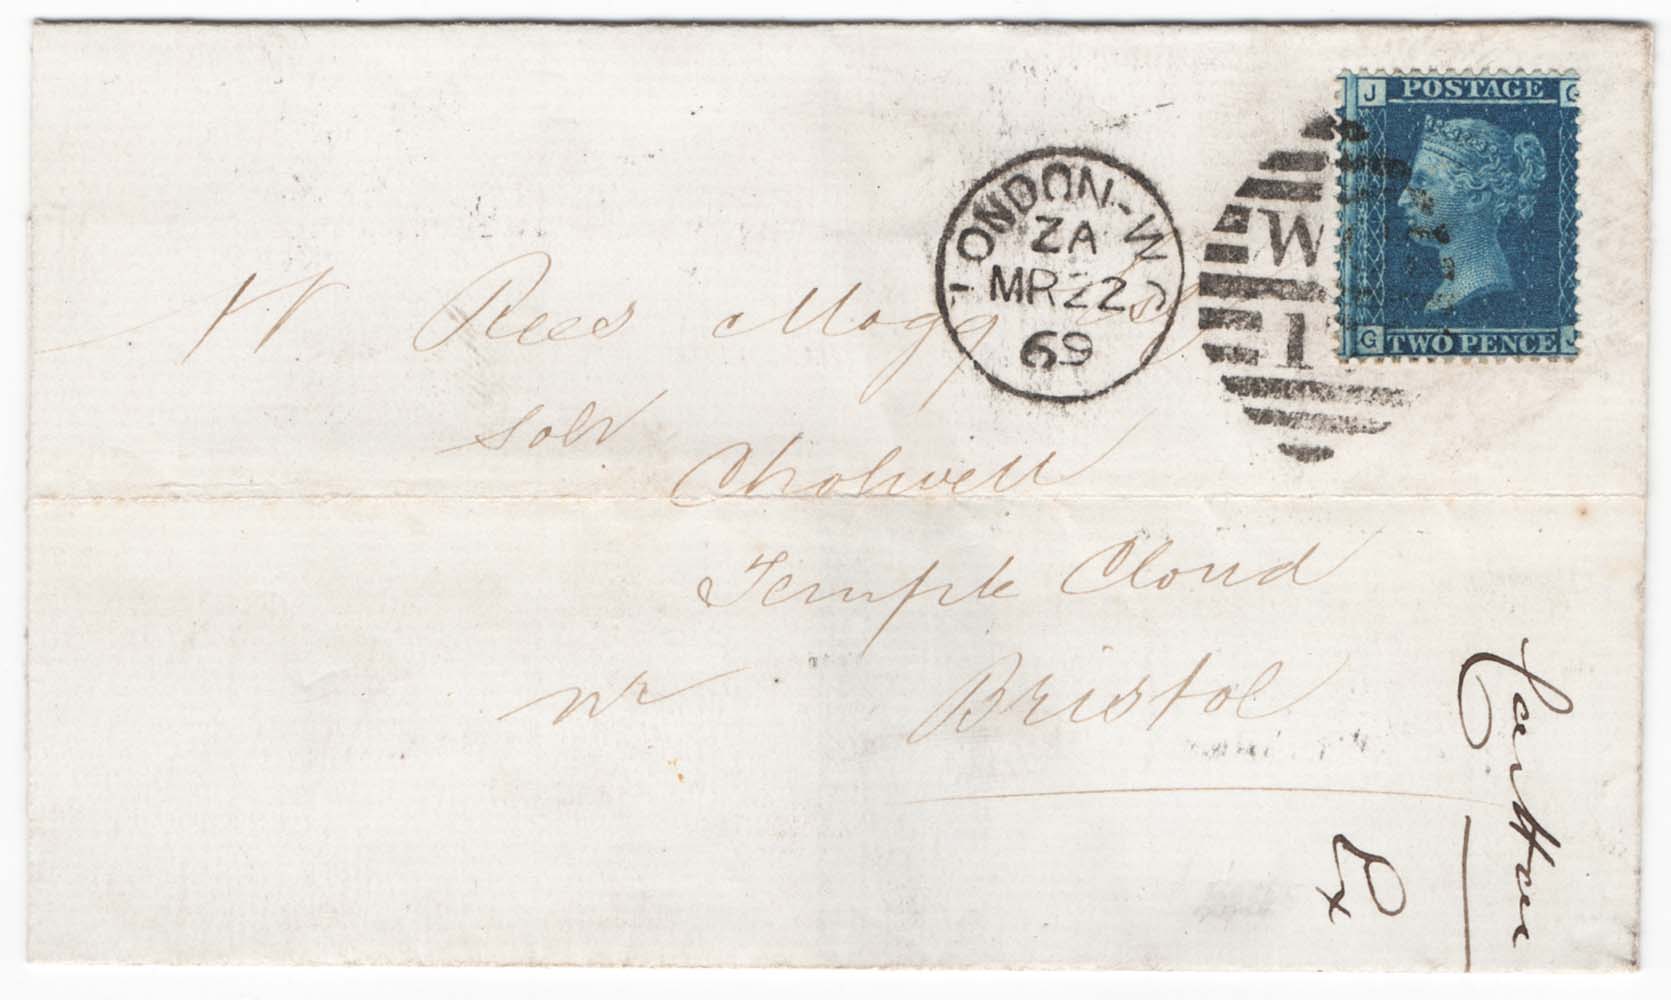 J POSTAGE G
G TWO PENCE J
LONDON-W.C
ZA
MR 22
69
W
1
W Rees Mogg Esq
Solr
Cholwell
Temple Cloud
nr Bristol